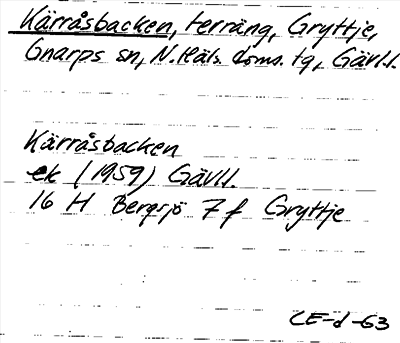 Kärråsbacken, terräng, Gryttje,
Gnarps sn, N. Häls. doms. tg, Gävl.l.
Kärråsbacken
ek (1959) Gävl.l.
16 H Bergsjö 7 f Gryttje
CE-d-63